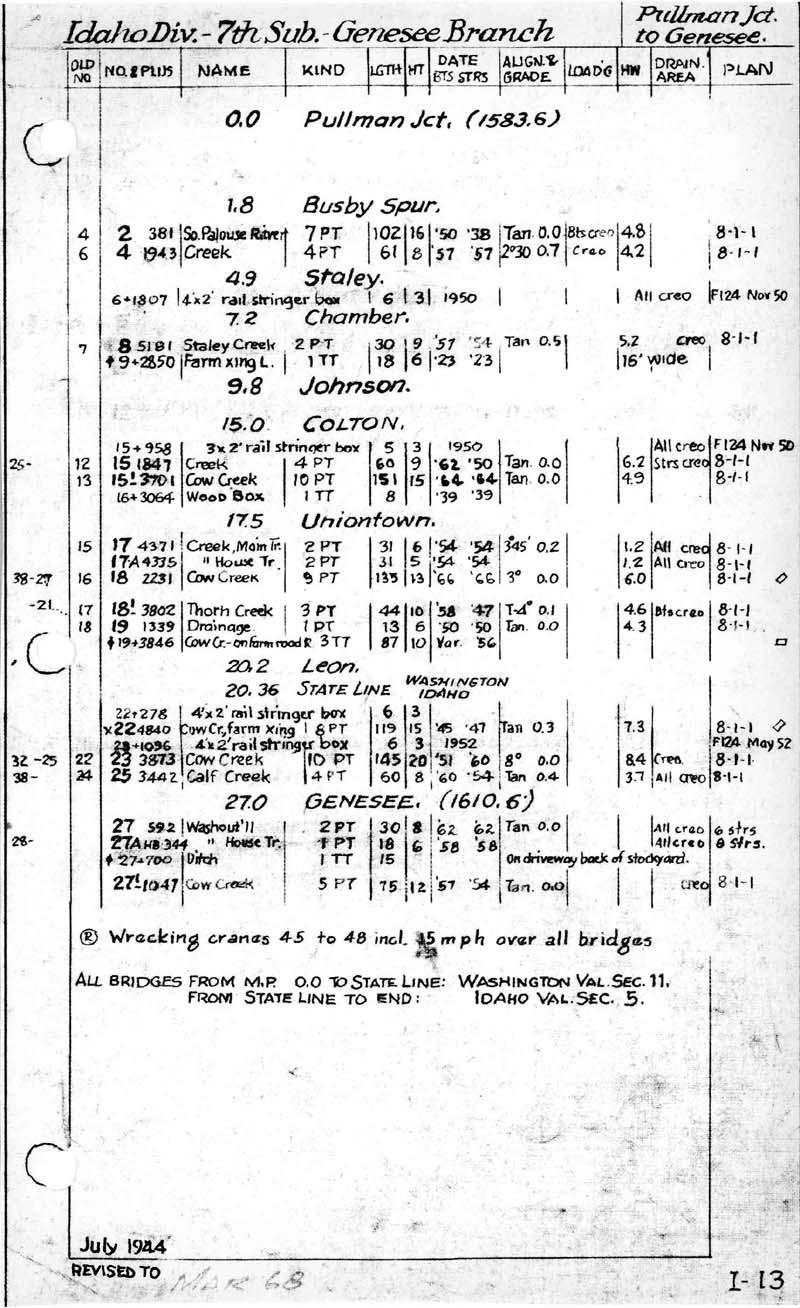 Idaho Div. - 7th Sub. - Genesee Branch
Pullman Jct. to Genesee.
OLD NO. NO. & PLUS NAME KIND LGTH HT DATE BTS STRS ALIGN. & GRADE LOAD'G HW DRAIN. AREA PLAN
0.0 Pullman Jct. (1583.6)
1.8 Busby Spur.
4 2 381 So. Palouse River 7 PT 102 16 '50 '38 Tan. 0.0 Bts creo 4.8 8-1-1
6 4 1943 Creek 4 PT 61 8 '57 '57 2°30 0.7 Creo 4.2 8-1-1
4.9 Staley.
6+1807 4'x2' rail stringer box 6 3 1950 All creo F124 Nov 50
7.2 Chamber.
7 8 5181 Staley Creek 2 PT 30 9 '57 '54 Tan 0.5 5.2 creo 8-1-1
9+2850 Farm Xing L. 1 TT 18 6 '23 '23 16' wide
9.8 Johnson.
15.0 COLTON.
15+958 3x2' rail stringer box 5 3 1950 All creo F124 Nov 50
25- 12 15 1847 Creek 4 PT 60 9 '62 '50 Tan. 0.0 6.2 Strs creo 8-1-1
13 15¹ 3701 Cow Creek 10 PT 151 15 '64 '64 Tan. 0.0 4.9 8-1-1
16+3064 Wood Box 1 TT 8 '39 '39
17.5 Uniontown.
15 17 4371 Creek, Main Tr. 2 PT 31 6 '54 '54 3°45' 0.2 1.2 All creo 8-1-1
17A 4335 " House Tr. 2 PT 31 5 '54 '54 1.2 All creo 8-1-1
38-27 16 18 2231 Cow Creek 9 PT 135 13 '66 '66 3° 0.0 6.0 8-1-1
-21 17 18¹ 3802 Thorn Creek 3 PT 44 10 '58 '47 T-4° 0.1 4.6 Bts creo 8-1-1
18 19 1339 Drainage 1 PT 13 6 '50 '50 Tan. 0.0 4.3 8-1-1
19+3846 Cow Cr.-on farm road R 3 TT 87 10 Var. '56
20.2 Leon.
20.36 STATE LINE WASHINGTON IDAHO
22+278 4'x2' rail stringer box 6 3
x22 4840 Cow Cr, farm Xing 8 PT 119 15 '45 '47 Tan 0.3 7.3 8-1-1
23+1096 4'x2' rail stringer box 6 3 1952 F124 May 52
32-25 22 23 3873 Cow Creek 10 PT 145 20 '51 '60 8° 0.0 8.4 Creo. 8-1-1
38- 24 25 3442 Calf Creek 4 PT 60 8 '60 '54 Tan 0.4 3.7 All creo 8-1-1
27.0 GENESEE. (1610.6)
27 592 Washout '11 2 PT 30 8 '62 '62 Tan 0.0 All creo 6 strs
28- 27A HB 344 " House Tr. 1 PT 18 6 '58 '58 All creo 8 Strs.
27+700 Ditch 1 TT 15 On driveway back of stockyard.
27¹ 1047 Cow Creek 5 PT 75 12 '57 '54 Tan. 0.0 creo 8-1-1
Ⓡ Wrecking cranes 45 to 48 incl. 15 mph over all bridges
ALL BRIDGES FROM M.P. 0.0 TO STATE LINE: WASHINGTON VAL. SEC. 11.
FROM STATE LINE TO END: IDAHO VAL. SEC. 5.
July 1944
REVISED TO MAR 68
I-13